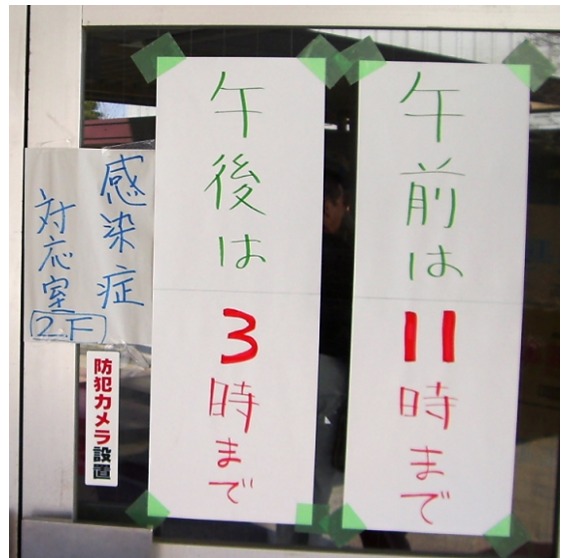 午前は
11時まで
午後は
3時まで
感染症
対応室
2F
防犯カメラ設置